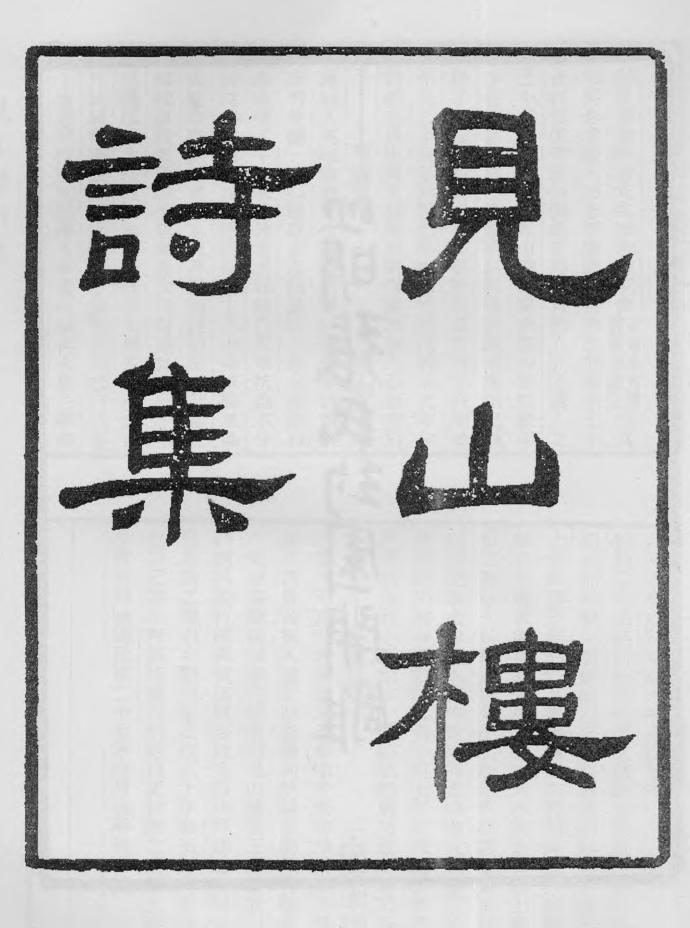 見山樓
詩集